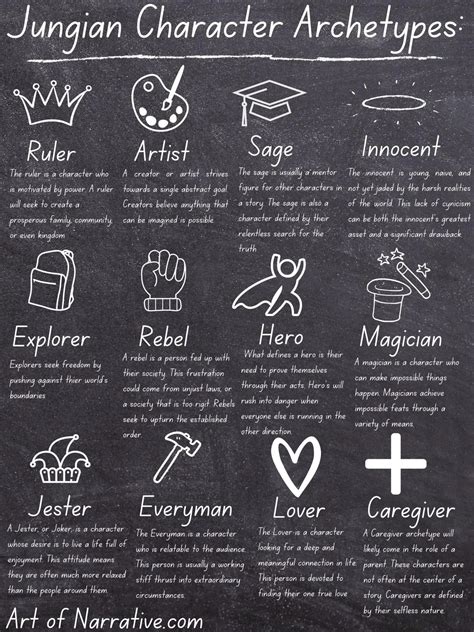 Jungian Character Archetypes:
Ruler
The ruler is a character who
is motivated by power. A ruler
will seek to create a
prosperous family, community,
or even kingdom
Artist
A creator or artist strives
towards a single abstract goal.
Creators believe anything that
can be imagined is possible.
Sage
The sage is usually a mentor
figure for other characters in
a story. The sage is also a
character defined by their
relentless search for the
truth
Innocent
The innocent is young, naive, and
not yet jaded by the harsh realities
of the world. This lack of cynicism
can be both the innocent's greatest
asset and a significant drawback
Explorer
Explorers seek freedom by
pushing against thier world's
boundaries
Rebel
A rebel is a person fed up with
their society. This frustration
could come from unjust laws, or
a society that is too rigit. Rebels
seek to upturn the established
order.
Hero
What defines a hero is their
need to prove themselves
through their acts. Hero's will
rush into danger when
everyone else is running in the
other direction.
Magician
A magician is a character who
can make impossible things
happen. Magicians achieve
impossible feats through a
variety of means.
Jester
A Jester, or Joker, is a character
whose desire is to live a life full of
enjoyment. This attitude means
they are often much more relaxed
than the people around them.
Everyman
The Everyman is a character
who is relatable to the audience.
This person is usually a working
stiff thrust into extraordinary
circumstances.
Lover
The Lover is a character
looking for a deep and
meaningful connection in life.
This person is devoted to
finding their one true love
Caregiver
A Caregiver archetype will
likely come in the role of a
parent. These characters are
not often at the center of
conflict. Caregivers are defined
by their selfless nature.
Art of Narrative.com